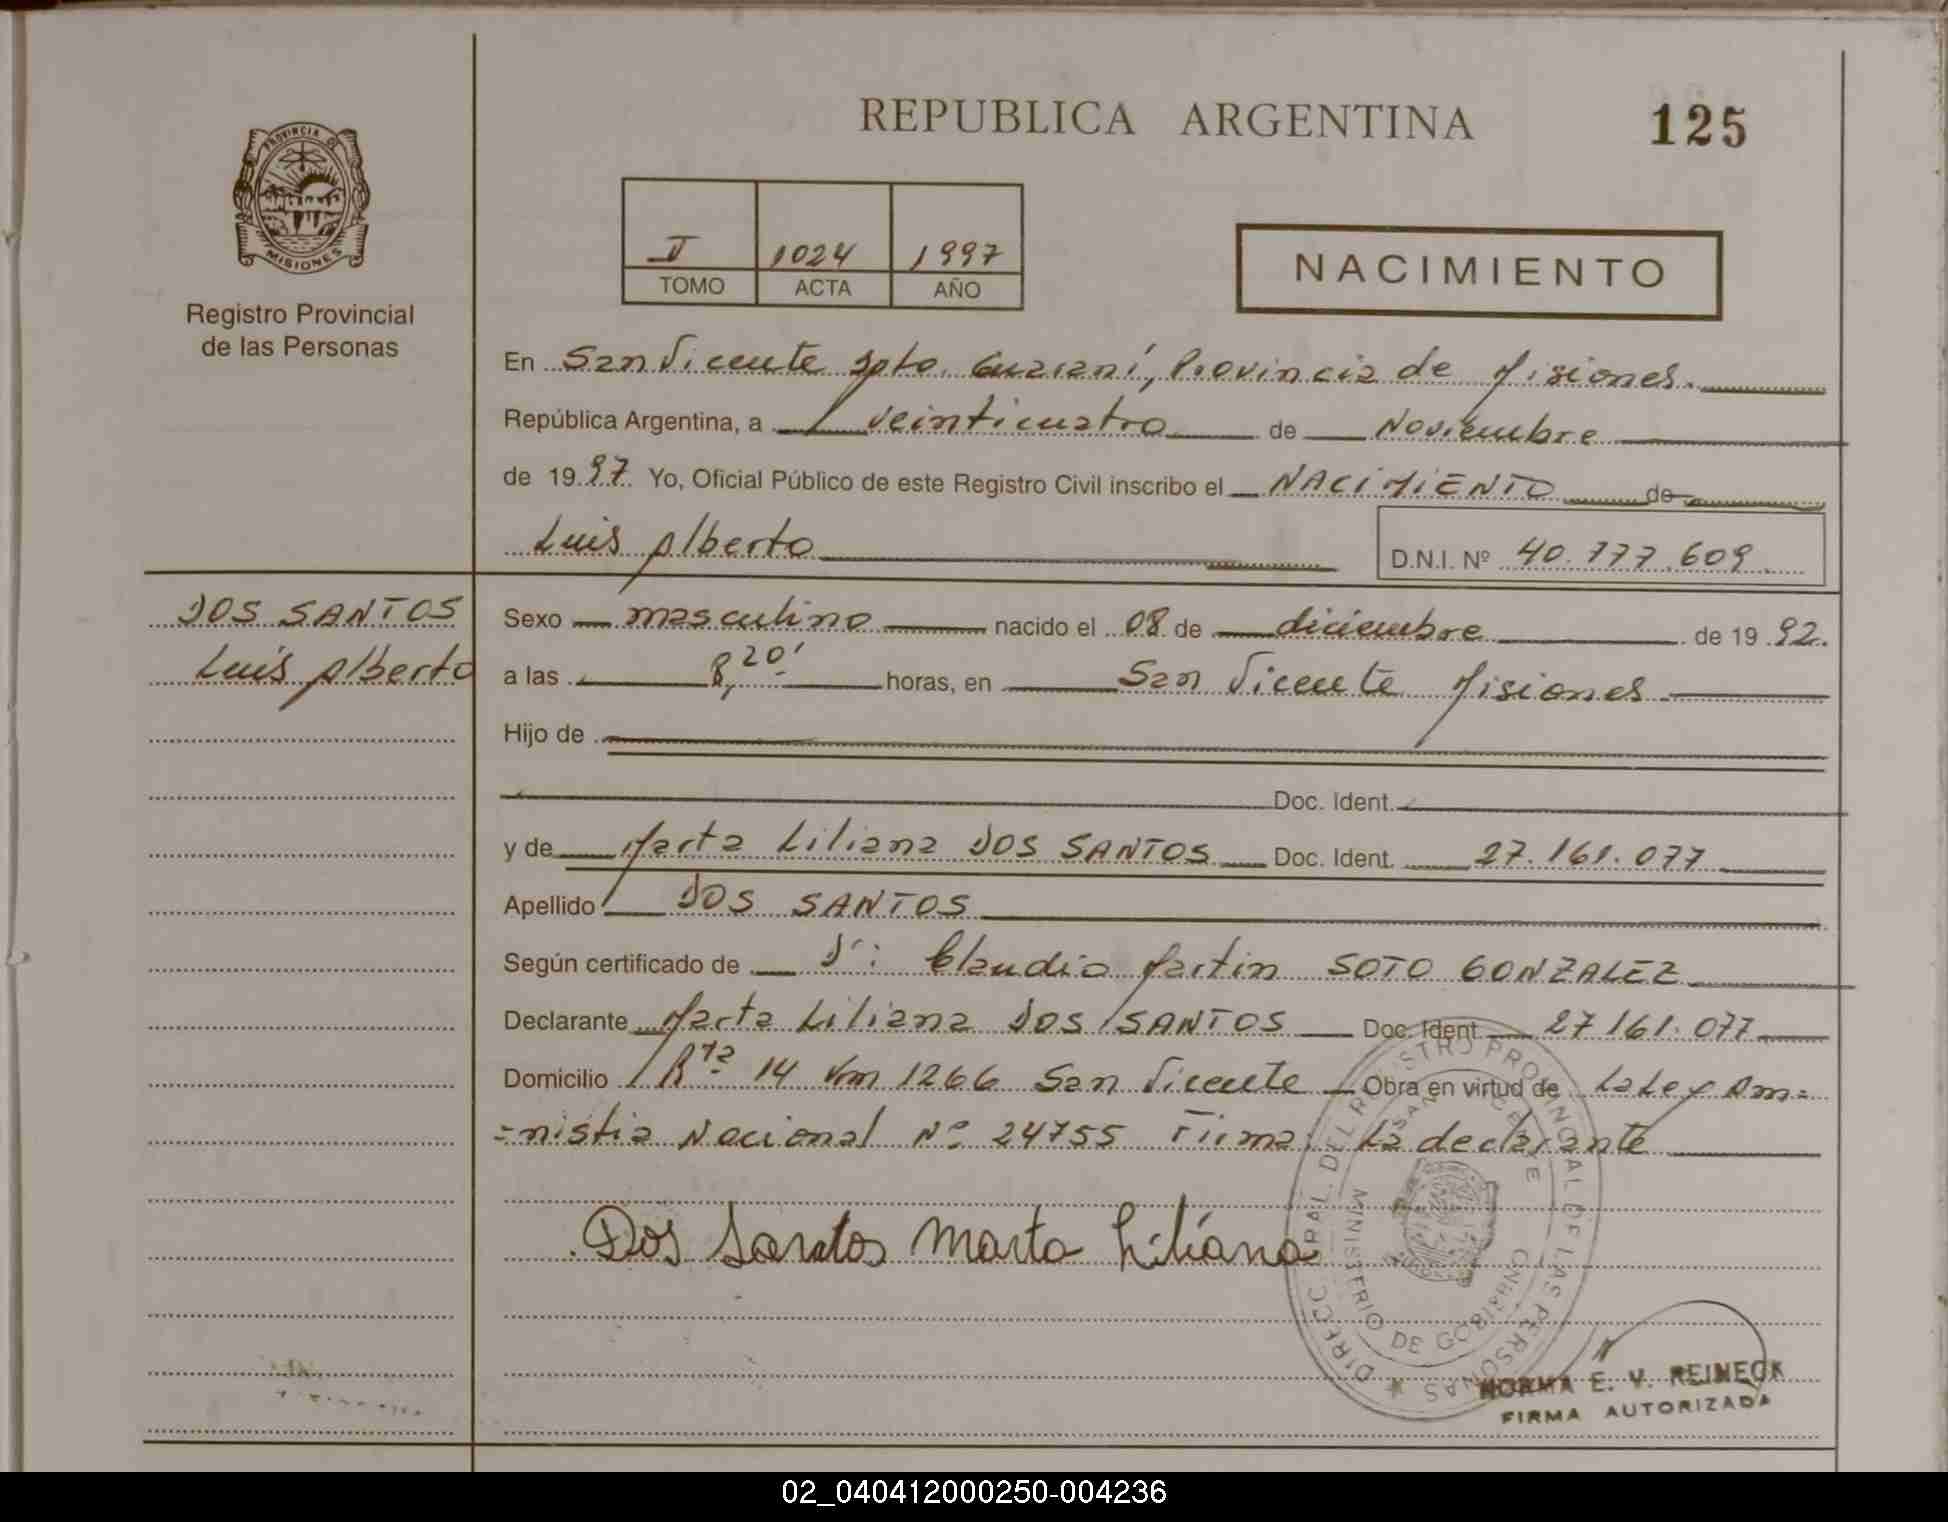 REPUBLICA ARGENTINA
125
PROVINCIA DE
MISIONES
Registro Provincial
de las Personas
V 1024 1997
TOMO ACTA AÑO
NACIMIENTO
En San Vicente Dpto. Guaraní, Provincia de Misiones.
República Argentina, a veinticuatro de Noviembre
de 1997. Yo, Oficial Público de este Registro Civil inscribo el NACIMIENTO de
Luis Alberto D.N.I. Nº 40.777.609.
DOS SANTOS
Luis Alberto
Sexo masculino nacido el 08 de diciembre de 1992.
a las 8,20' horas, en San Vicente Misiones
Hijo de
Doc. Ident.
y de Marta Liliana DOS SANTOS Doc. Ident. 27.161.077
Apellido DOS SANTOS
Según certificado de Dr: Claudio Martin SOTO GONZALEZ
Declarante Marta Liliana DOS SANTOS Doc. Ident. 27161.077
Domicilio Rta 14 Km 1266 San Vicente Obra en virtud de La Ley Am=
=nistia Nacional Nº 24755 Firma: La declarante
Dos Santos Marta Liliana
DIRECC. GRAL. DEL REGISTRO PROVINCIAL DE LAS PERSONAS
SAN VICENTE
MINISTERIO DE GOBIERNO
NORMA E. V. REINECK
FIRMA AUTORIZADA
02_040412000250-004236